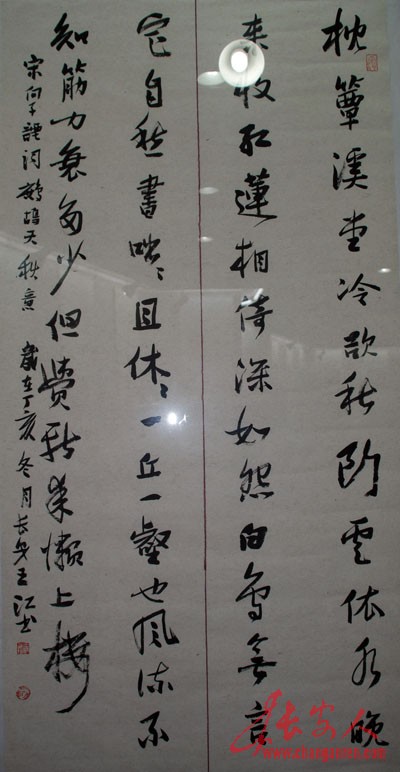 枕簟溪堂冷欲秋断雲依水晚
来收红蓮相倚深如怨白鸟無言
定自愁書咄々且休々一丘一壑也风流不
知筋力衰多少但覺新来懒上楼
宋向子諲词鹧鸪天秋意 歲在丁亥冬月长安王江书
长安人